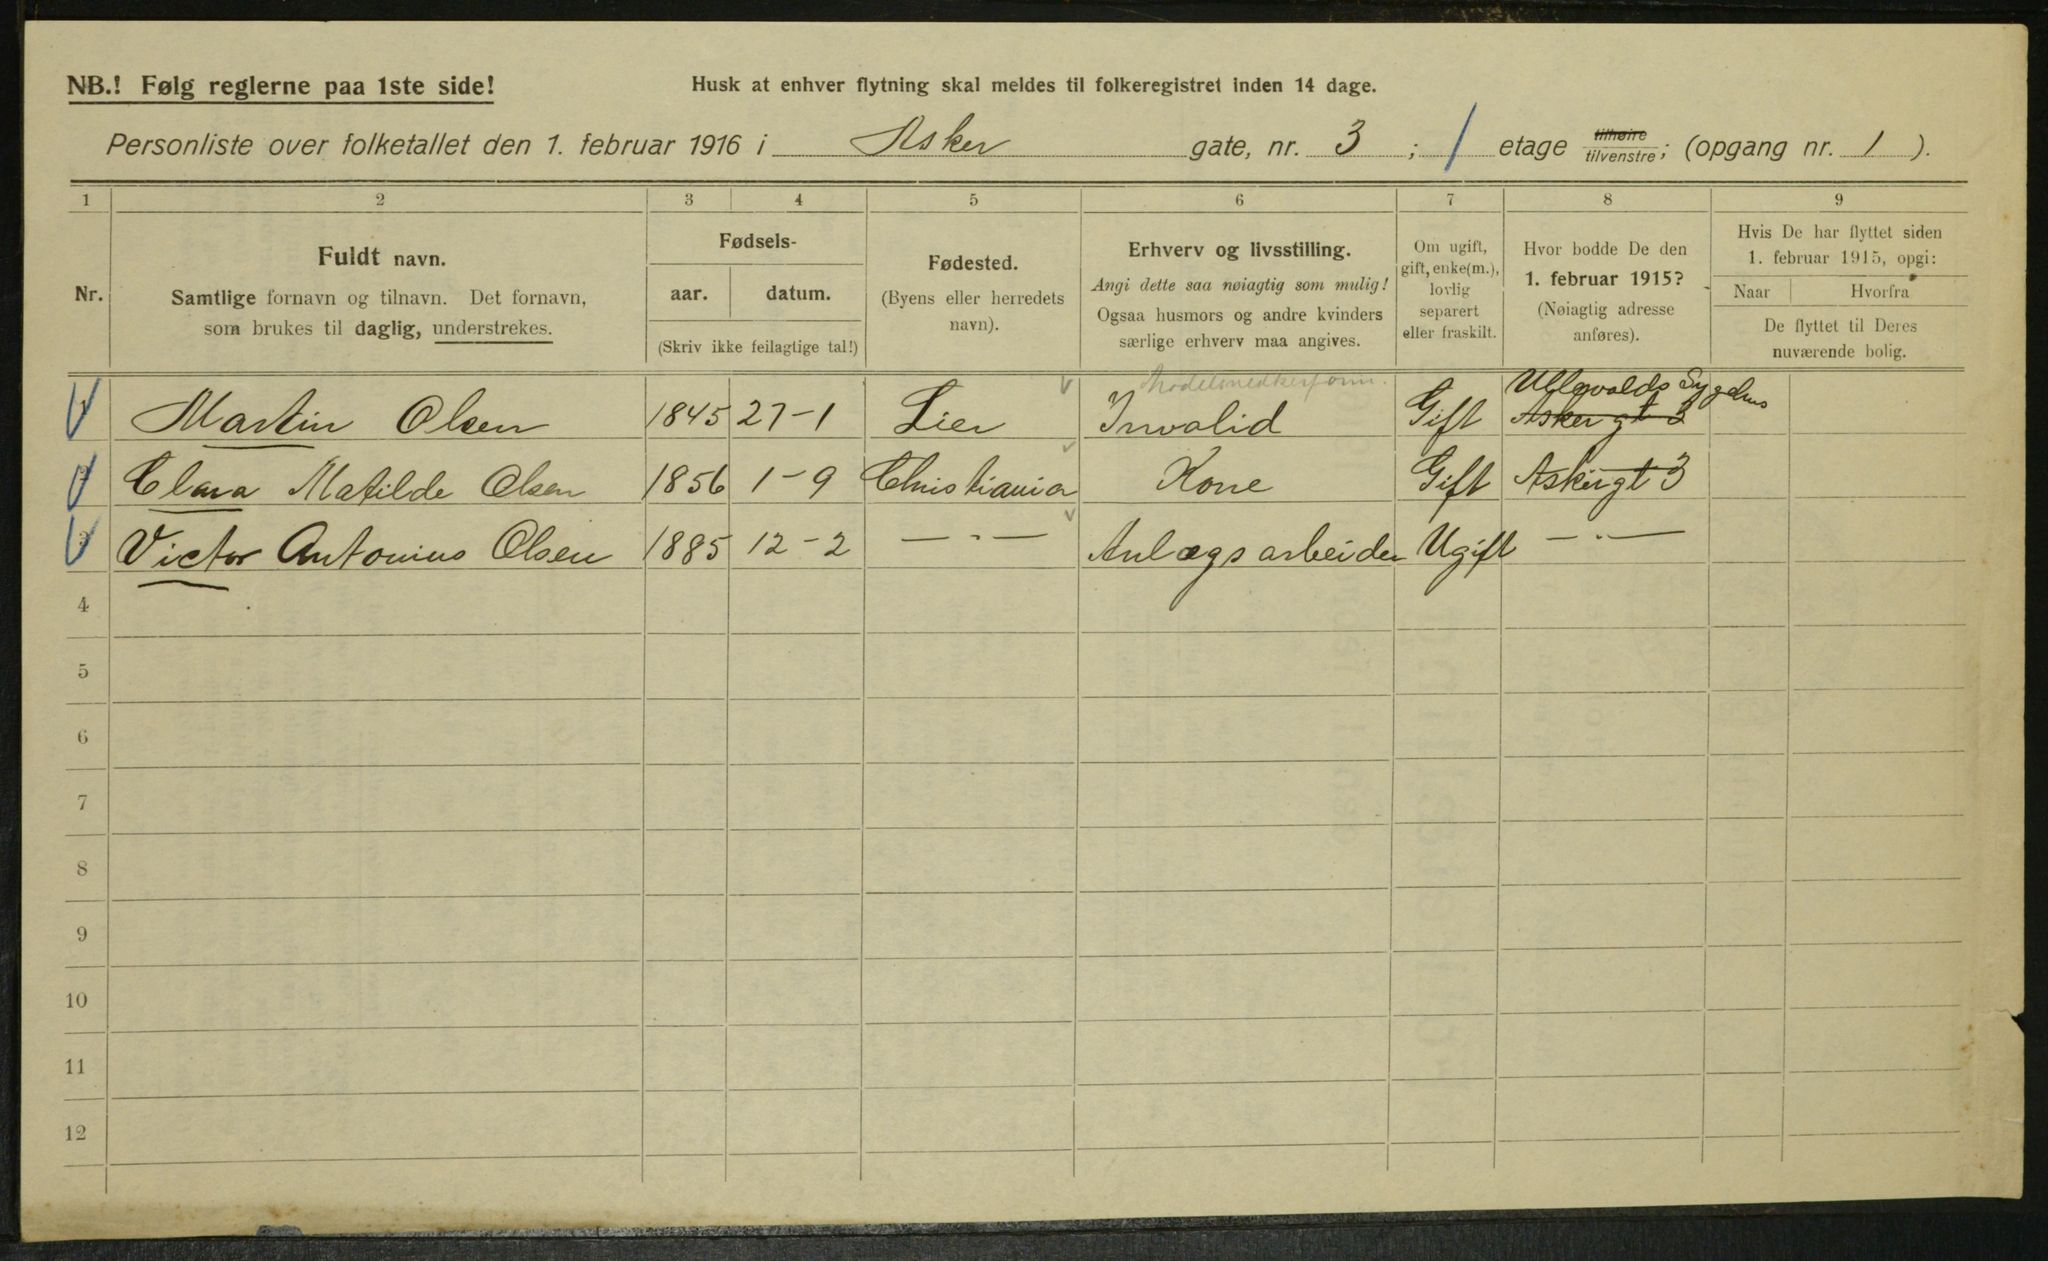 NB.! Følg reglerne paa 1ste side!
Husk at enhver flytning skal meldes til folkeregistret inden 14 dage.
Personliste over folketallet den 1. februar 1916 i Asker gate, nr. 3; 1 etage tilhøire tilvenstre; (opgang nr. 1).
1 2 3 4 5 6 7 8 9
Nr.
Fuldt navn.
Samtlige fornavn og tilnavn. Det fornavn,
som brukes til daglig, understrekes.
Fødsels-
aar. datum.
(Skriv ikke feilagtige tal!)
Fødested.
(Byens eller herredets
navn).
Erhverv og livsstilling.
Angi dette saa nøiagtig som mulig!
Ogsaa husmors og andre kvinders
særlige erhverv maa angives.
Om ugift,
gift, enke(m.),
lovlig
separert
eller fraskilt.
Hvor bodde De den
1. februar 1915?
(Nøiagtig adresse
anføres).
Hvis De har flyttet siden
1. februar 1915, opgi:
Naar Hvorfra
De flyttet til Deres
nuværende bolig.
Ullevolds Sygehus
1 Martin Olsen 1845 27-1 Lier Invalid Gift Askergt 3
2 Clara Matilde Olsen 1856 1-9 Christiania Kone Gift Askergt 3
3 Victor Antonius Olsen 1885 12-2 — " — Anlægsarbeider Ugift — " —
4
5
6
7
8
9
10
11
12